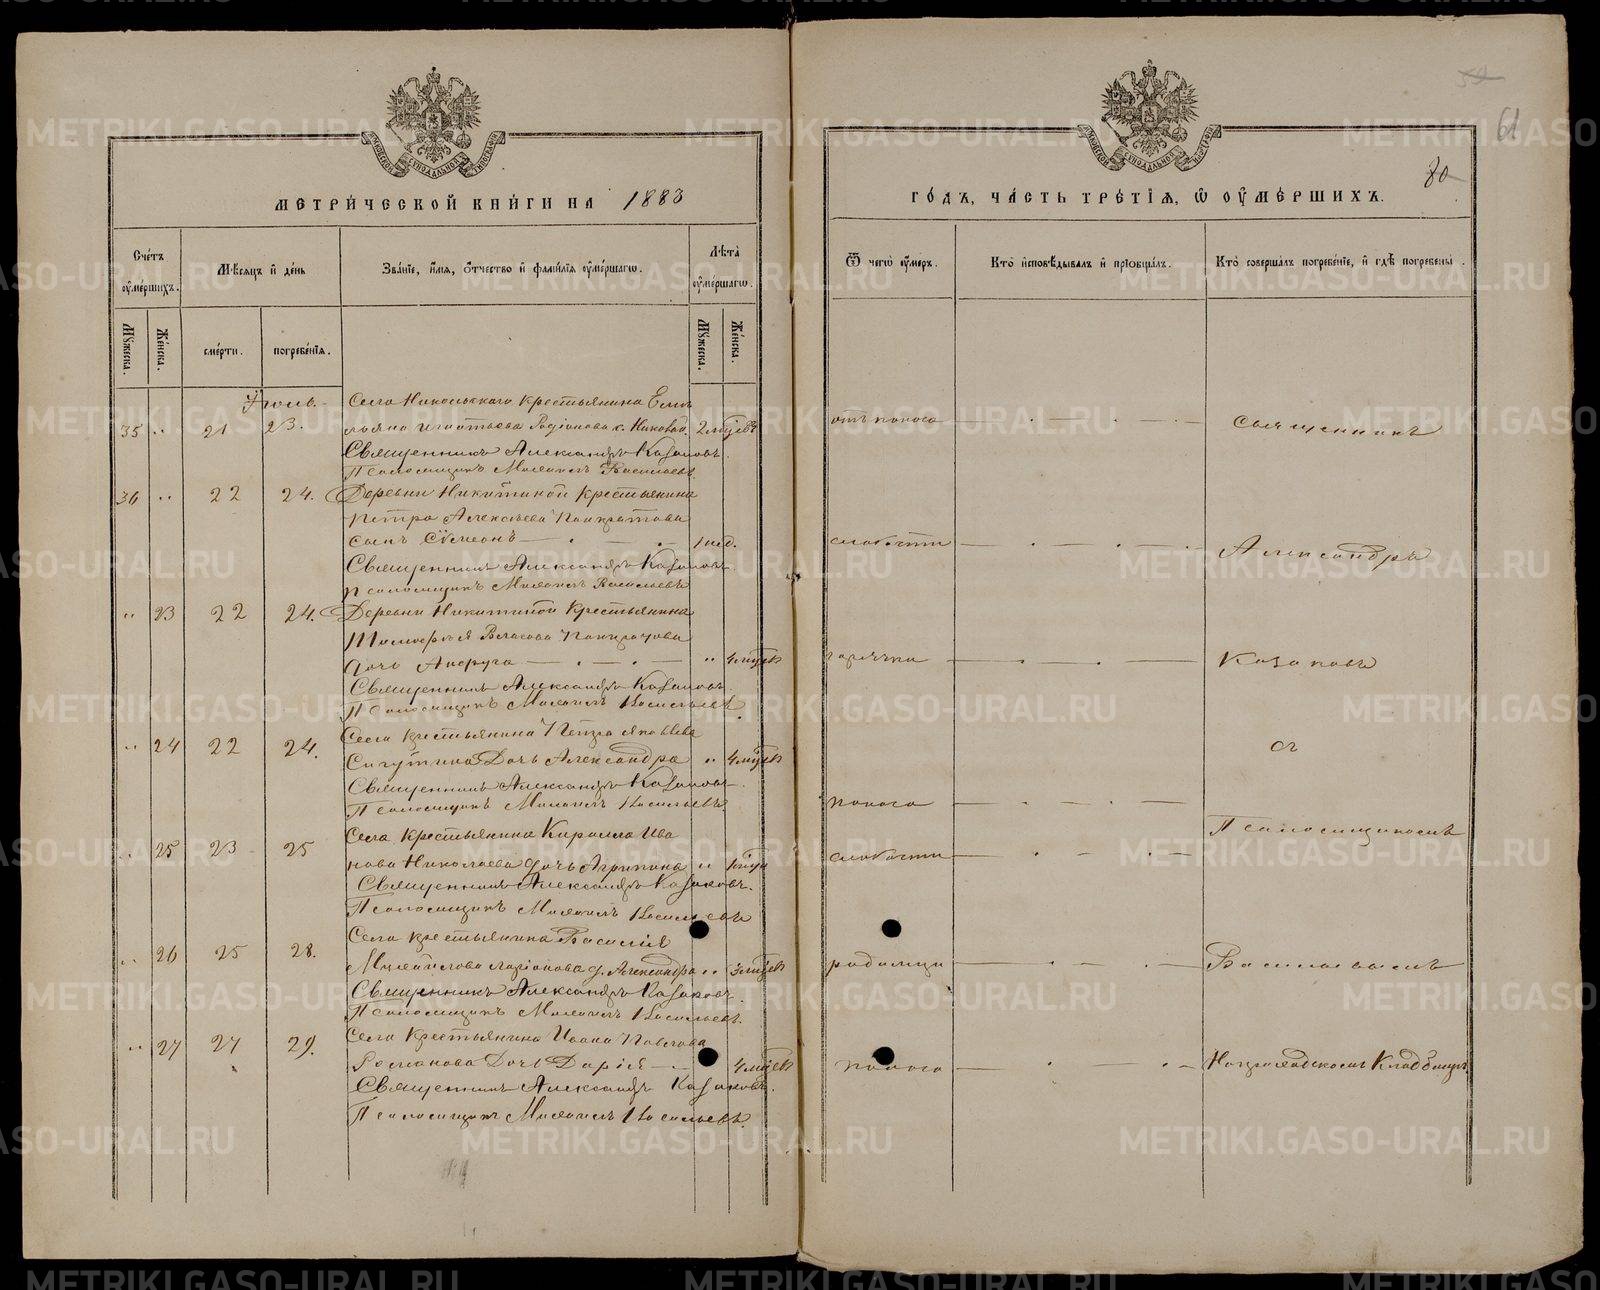 МЕТРИЧЕСКОЙ КНИГИ НА 1883
Счетъ оумершихъ.
Мѣсяцъ и день
Званіе, имя, отчество и фамилія оумершагѡ.
Лѣта оумершагѡ.
Мужеска.
Женска.
смерти.
погребенія.
Мужеска.
Женска.
Іюль. Села Никольскаго Крестьянина Емель
35 " 21 23. яна Игнатьева Родіонова с. 2 мцев
Священникъ Александръ Казаковъ.
Псаломщикъ Михаилъ Васильевъ.
36 " 22 24. Деревни Никитиной Крестьянина
Петра Алексѣева Панкратова
сынъ Сѵмеонъ — . — . 1 нед.
Священникъ Александръ Казаковъ.
Псаломщикъ Михаилъ Васильевъ
" 23 22 24. Деревни Никитиной Крестьянина
Тимофея Власова Панкратова
дочь — . — . — " 4 мцев
Священникъ Александръ Казаковъ.
Псаломщикъ Михаилъ Васильевъ.
" 24 22 24. Села крестьянина Петра Яковлева
Сигутина Дочь Александра " 4 мцев
Священникъ Александръ Казаковъ.
Псаломщикъ Михаилъ Васильевъ
" 25 23 25 Села Крестьянина Кирилла Ива
нова Николаева дочь Агрипина "
Священникъ Александръ Казаковъ.
Псаломщикъ Михаилъ Васильевъ
" 26 25 28. Села крестьянина Василія
Михайлова Ларіонова д. Александра " 3 мцев
Священникъ Александръ Казаковъ.
Псаломщикъ Михаилъ Васильевъ.
" 27 27 29. Села Крестьянина Ивана Павлова
Романова Дочь Дарія — 4 мцев
Священникъ Александръ Казаковъ.
Псаломщикъ Михаилъ Васильевъ.
61
80
ГОДЪ, ЧАСТЬ ТРЕТІЯ, Ѡ ОУМЕРШИХЪ.
Ѿ чегѡ оумеръ.
Кто исповѣдывалъ и пріобщалъ.
Кто совершалъ погребеніе, и гдѣ погребены.
отъ поноса
Священникъ
слабости
Александръ
горячки
Казаковъ
съ
поноса
Псаломщикомъ
слабости
родимца
Васильевымъ
поноса
На приходскомъ Кладбищѣ
METRIKI.GASO-URAL.RU